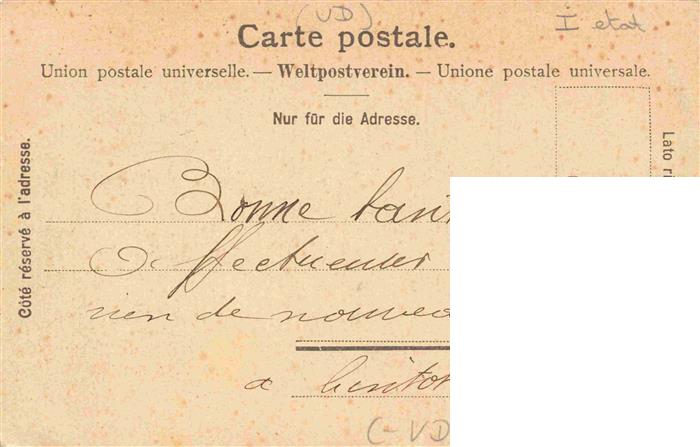 (VD)
I etat
Carte postale.
Union postale universelle. — Weltpostverein. — Unione postale universale.
Nur für die Adresse.
Côté réservé à l'adresse.
Lato ri
Bonne
rien de nouvea
a
(-VD